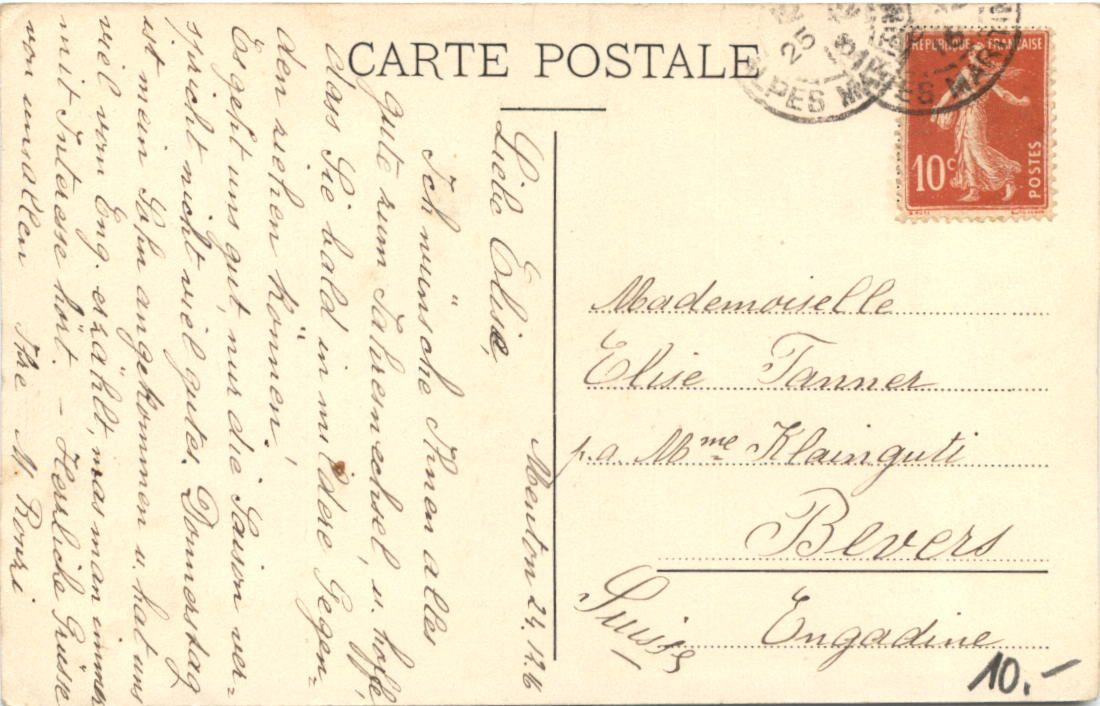 CARTE POSTALE
RÉPUBLIQUE FRANÇAISE
10c
POSTES
25
ALPES MARIT
ALPES MARITIM
Menton 24.12.
Liebe Elise,
Ich wünsche Ihnen alles
gute zum Jahreswechsel, u. hoffe,
dass Sie bald in mildere Gegen-
den ziehen können,
Es geht uns gut, nur die Saison ver-
spricht nicht viel gutes. Donnerstag
ist mein Sohn angekommen u. hat uns
viel vom Eng. erzählt, was man immer
mit Interesse hört. – Herrliche Grüsse
von uns allen Ihre M. Ronzi
Mademoiselle
Elise Tanner
p.a. Mme Klainguti
Bevers
Engadine
Suisse
10.-